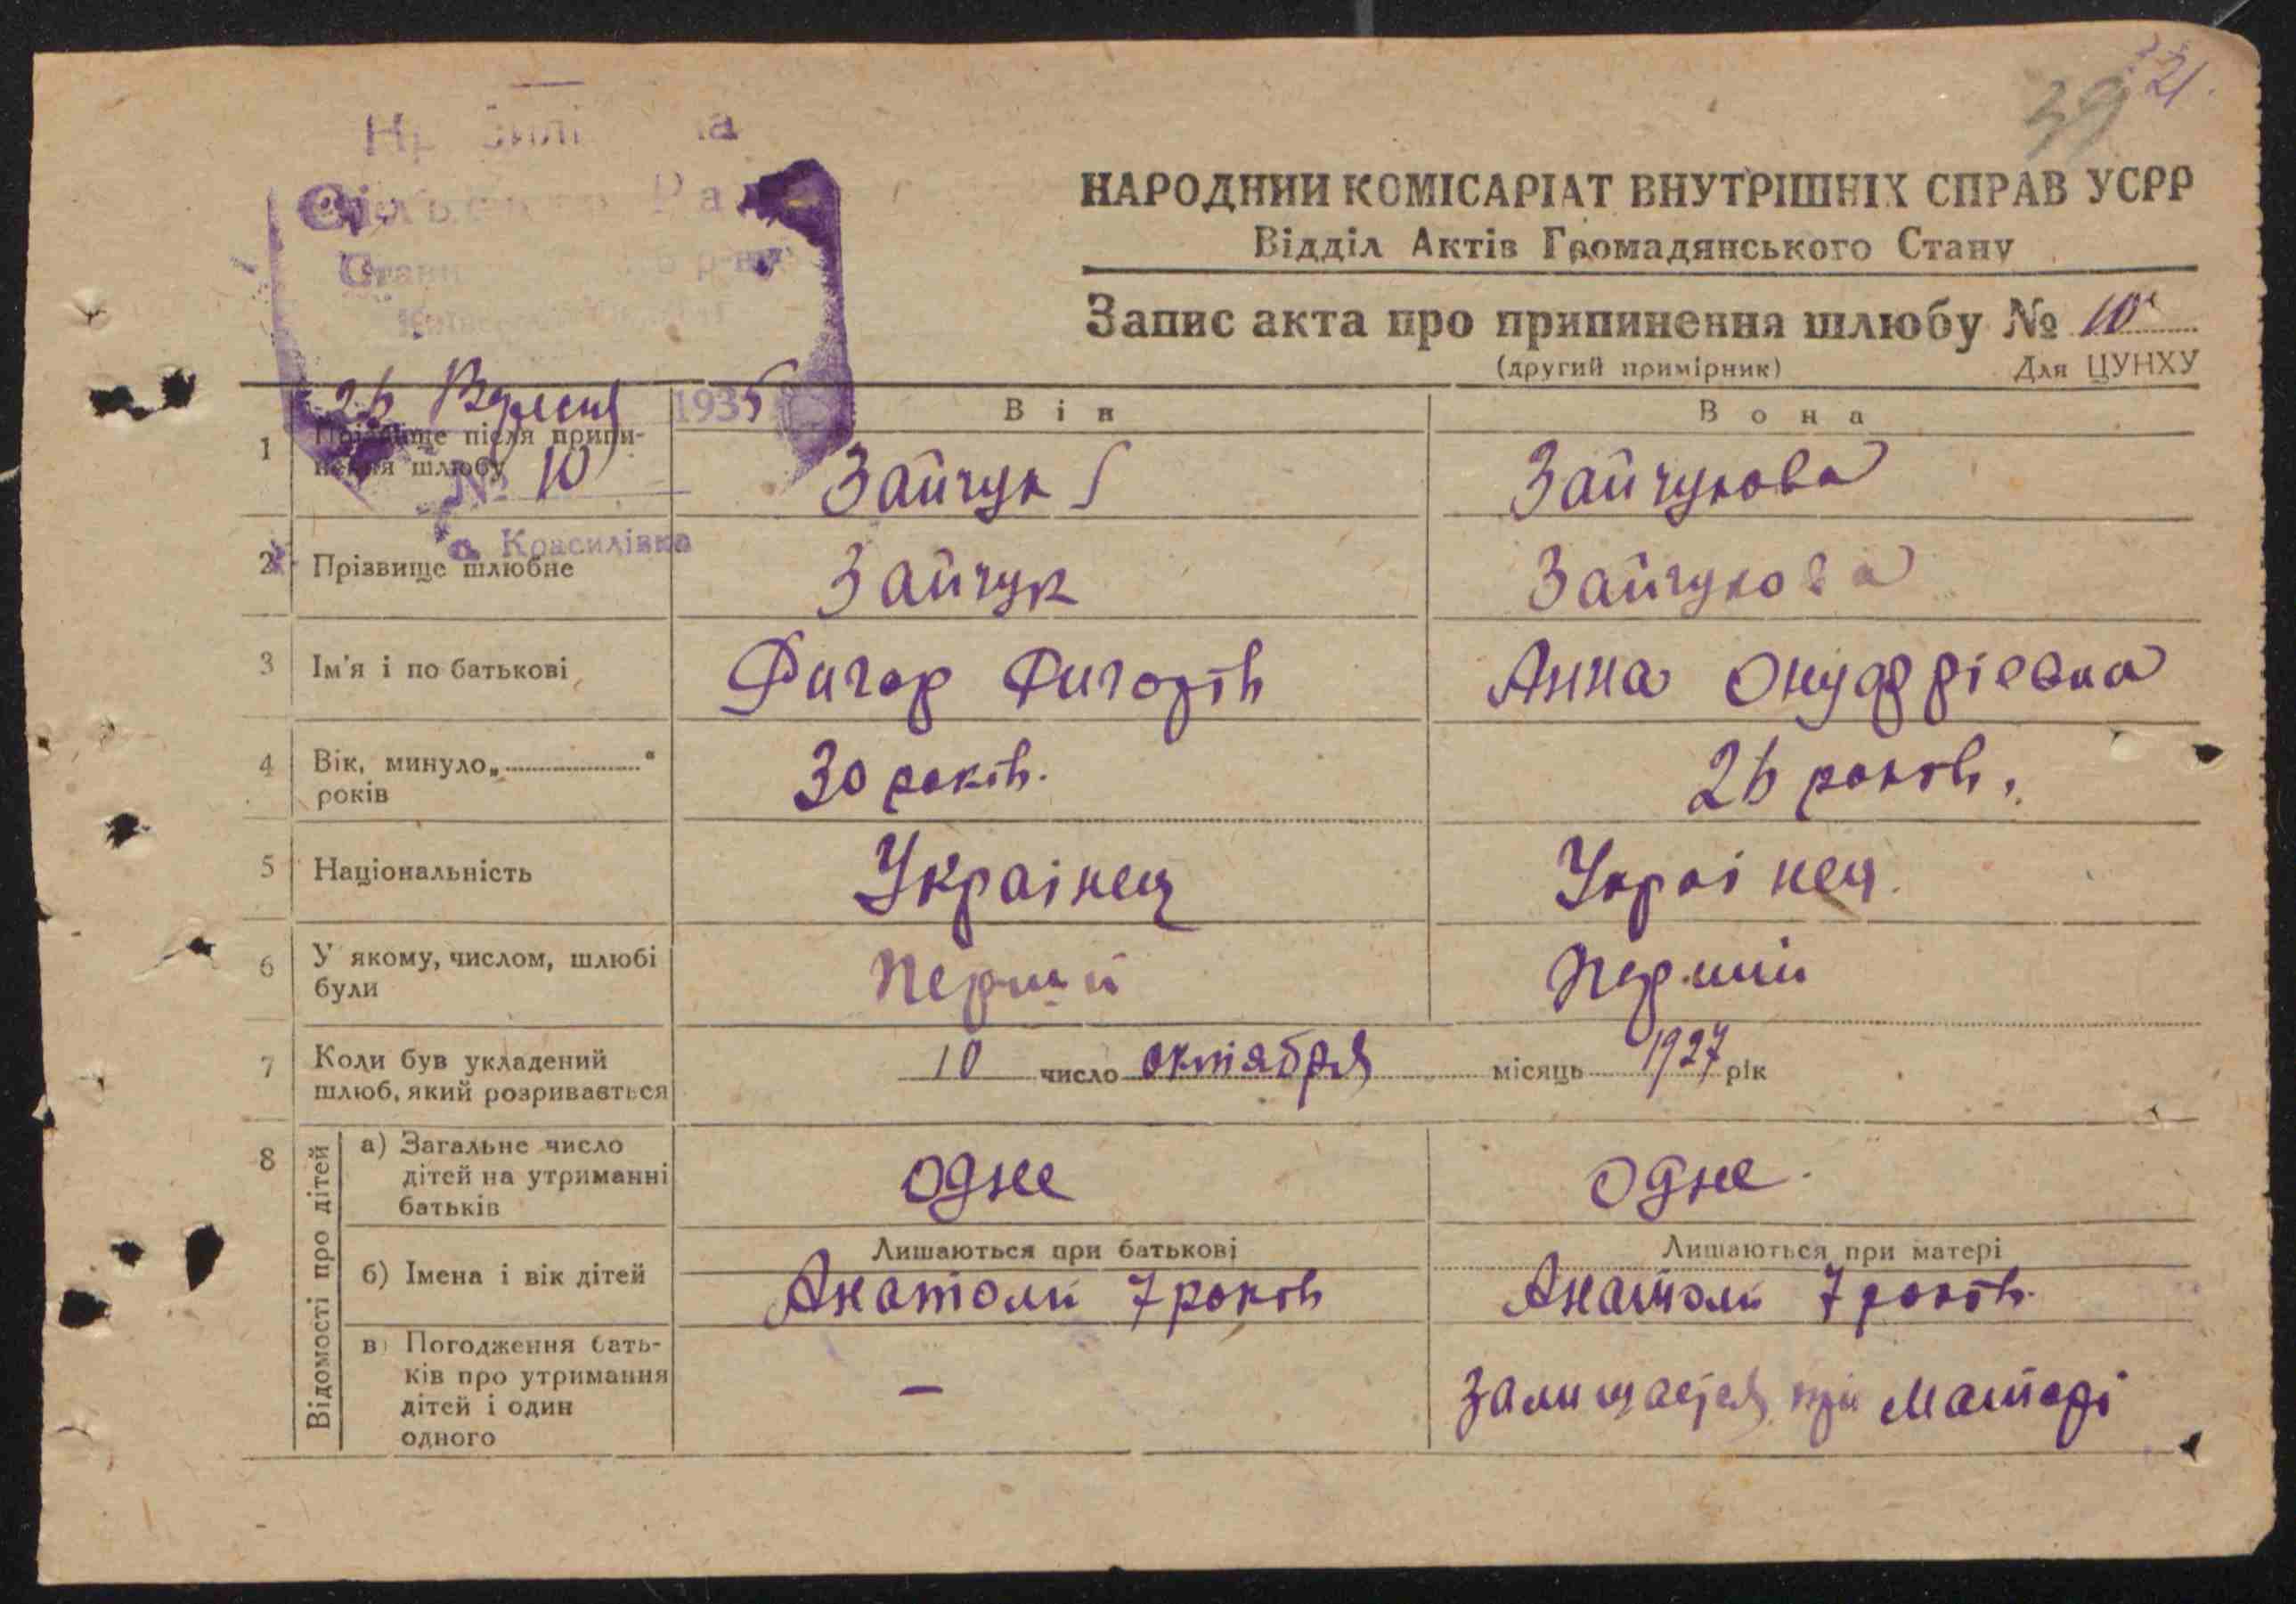 21.
39
Сільська Рада
26 Вересня 1935
№ 10
с. Красилівка
НАРОДНИЙ КОМІСАРІАТ ВНУТРІШНІХ СПРАВ УСРР
Відділ Актів Громадянського Стану
Запис акта про припинення шлюбу № 10
(другий примірник) Для ЦУНХУ
Він Вона
1 Прізвище після припи-
нення шлюбу Зайчук Зайчукова
2 Прізвище шлюбне Зайчук Зайчукова
3 Ім'я і по батькові Фигор Фигорів Анна Онуфріевна
4 Вік, минуло „ “
років 30 років. 26 років.
5 Національність Украінец Украінец.
6 У якому, числом, шлюбі
були Перший Перший
7 Коли був укладений
шлюб, який розривається 10 число октября місяць 1927 рік
8 Відомості про дітей
а) Загальне число
дітей на утриманні
батьків одне одне.
Лишаються при батькові Лишаються при матері
б) Імена і вік дітей Анатоли 7 років Анатоли 7 років.
в) Погодження бать-
ків про утримання
дітей і один
одного — залищаеться при Матері